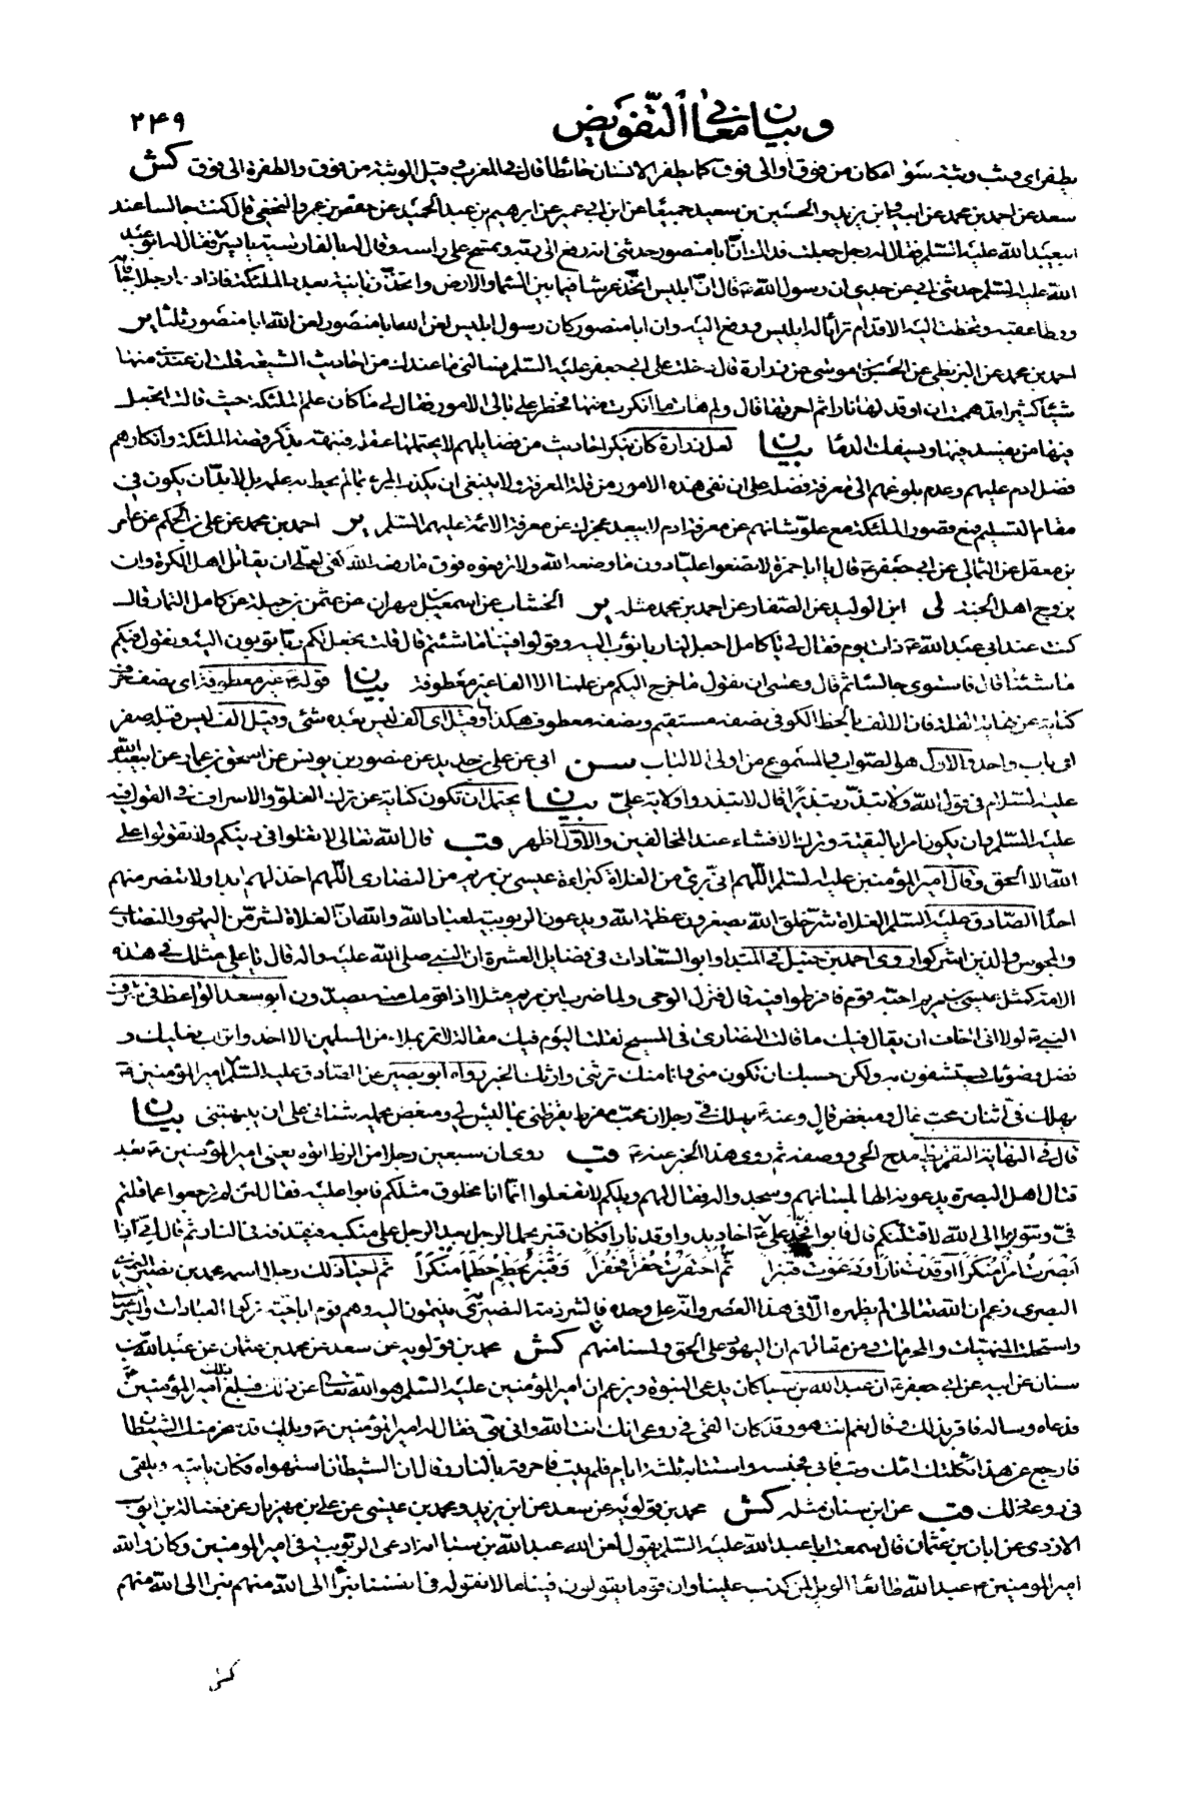 وبيان معاني التفويض ٢٤٩
يطفر اى يثب وثبة سواء كان من فوق او الى فوق كما يطفر الانسان حائطا قال في المغرب وقيل الوثبة من فوق والطفرة الى فوق كش
سعد عن احمد بن محمد عن ابيه وابن يزيد والحسين بن سعيد جميعا عن ابن ابي عمير عن ابرهيم بن عبد الحميد عن حفص بن عمرو النخعي قال كنت جالسا عند
ابيعبد الله عليه السلم فقال له رجل جعلت فداك ان ابا منصور حدثني انه رفع الى ربه وتمسح على راسه وقال له بالفارسية يا پسر فقال له ابو عبد
الله عليه السلم حدثني ابي عن جدي ان رسول الله ص قال ان ابليس اتخذ عرشا فيما بين السماء والارض واتخذ زبانية بعدد الملئكة فاذا دعا رجلا فاجابه
ووطا عقبه وتخطت اليه الاقدام ترايا له ابليس ورفع اليه وان ابا منصور كان رسول ابليس لعن الله ابا منصور لعن الله ابا منصور ثلثا ير
احمد بن محمد عن البزنطي عن الحسن بن موسى عن زرارة قال دخلت على ابي جعفر عليه السلم فسالني ما عندك من احاديث الشيعة قلت ان عندي منها
شيئا كثيرا قد هممت ان اوقد لها نارا ثم احرقها قال ولم هات ما انكرت منها فخطر على بالى الامور فقال لي ما كان علم الملئكة حيث قالت اتجعل
فيها من يفسد فيها ويسفك الدماء بيان لعل زرارة كان ينكر احاديث من فضايلهم لا يحتملها عقله فنبهه بذكر قصة الملئكة وانكارهم
فضل ادم عليهم وعدم بلوغهم الى معرفة فضله على ان نفى هذه الامور من قلة المعرفة ولا ينبغي ان يكذب المرء بما لم يحط به علمه بل لا بد ان يكون في
مقام التسليم فمع قصور الملئكة مع علو شانهم عن معرفة ادم لا يبعد عجزك عن معرفة الائمة عليهم السلم ير احمد بن محمد عن علي بن الحكم عن عامر
بن معقل عن الثمالي عن ابي جعفر ع قال يا ابا حمزة لا تضعوا عليا دون ما وضعه الله ولا ترفعوه فوق ما رفعه الله كفى لعلي ان يقاتل اهل الكرة وان
يزوج اهل الجنة لى ابن الوليد عن الصفار عن احمد بن محمد مثله ير الخشاب عن اسمعيل بن مهران عن عثمن بن جبلة عن كامل التمار قال
كنت عند ابي عبد الله ع ذات يوم فقال لي يا كامل اجعل لنا ربا نؤب اليه وقولوا فينا ما شئتم قال قلت نجعل لكم ربا تؤبون اليه ونقول فيكم
ما شئنا قال فاستوى جالسا ثم قال وعسى ان نقول ما خرج اليكم من علمنا الا الفا غير معطوفة بيان قوله ع غير معطوفة اى نصف حرف
كناية عن نهاية القلة فان الالف بالخط الكوفى نصفه مستقيم ونصفه معطوف هكذا وقيل اى الف ليس بعده شئ وقيل الف ليس قبله صفر
اى باب واحد والاول هو الصواب والمسموع من اولى الالباب سن ابي عن علي بن حديد عن منصور بن يونس عن اسحق بن عمار عن ابيعبد الله
عليه السلام في قول الله ولا تبذر تبذيرا قال لا تبذر ولاية علي بيان يحتمل ان تكون كناية عن ترك الغلو والاسراف في القول فيه
عليه السلم وان يكون امرا بالتقية وترك الافشاء عند المخالفين والاول اظهر قب قال الله تعالى لا تغلوا في دينكم ولا تقولوا على
الله الا الحق وقال امير المؤمنين عليه السلم اللهم اني بريء من الغلاة كبراءة عيسى بن مريم من النصارى اللهم اخذلهم ابدا ولا تنصر منهم
احدا الصادق عليه السلم الغلاة شر خلق الله يصغرون عظمة الله ويدعون الربوبية لعباد الله والله ان الغلاة لشر من اليهود والنصارى
والمجوس والذين اشركوا روى احمد بن حنبل في المبتدا وابو السعادات في فضايل العشرة ان النبي صلى الله عليه واله قال يا علي مثلك في هذه
الامة كمثل عيسى بن مريم احبه قوم فافرطوا فيه قال فنزل الوحى ولما ضرب ابن مريم مثلا اذا قومك منه يصدون ابو سعد الواعظ في شرف
النبي ص لولا اني اخاف ان يقال فيك ما قالت النصارى في المسيح لقلت اليوم فيك مقالة لا تمر بملاء من المسلمين الا اخذوا تراب نعليك و
فضل وضوءك يستشفون به ولكن حسبك ان تكون مني وانا منك ترثني وارثك الخبر رواه ابو بصير عن الصادق عليه السلم امير المؤمنين ع
يهلك في اثنان محب غال ومبغض قال وعنه ع يهلك في رجلان محب مفرط يقرظني بما ليس لي ومبغض يحمله شناني على ان يبهتني بيان
قال في النهاية التقريظ مدح الحي ووصفه ثم روى هذا الخبر عنه ع قب روى ان سبعين رجلا من الزط اتوه يعني امير المؤمنين ع بعد
قتال اهل البصرة يدعونه الها بلسانهم وسجدوا له فقال لهم ويلكم لا تفعلوا انما انا مخلوق مثلكم فابوا عليه فقال لئن لم ترجعوا عما قلتم
في وتتوبوا الى الله لاقتلنكم قال فابوا فخد علي ع اخاديد واوقد نارا فكان قنبر يحمل الرجل بعد الرجل على منكبه فيقذفه في النار ثم قال اني اذا
ابصرت امرا منكرا اوقدت نارا ودعوت قنبرا ثم احتفرت حفرا فحفرا وقنبر يحطم حطما منكرا ثم احيا ذلك رجل اسمه محمد بن نصير النميري
البصرى زعم ان الله تعالى لم يظهره الا في هذا العصر وانه علي وحده فالشرذمة النصيرية ينتمون اليه وهم قوم اباحية تركوا العبادات والشرعيات
واستحلت المنهيات والمحرمات ومن مقالهم ان اليهود على الحق ولسنا منهم كش محمد بن قولويه عن سعد عن محمد بن عثمان عن عبد الله بن
سنان عن ابيه عن ابي جعفر ع ان عبد الله بن سبا كان يدعى النبوة ويزعم ان امير المؤمنين عليه السلم هو الله تعالى عن ذلك فبلغ ذلك امير المؤمنين ع
فدعاه وساله فاقر بذلك وقال نعم انت هو وقد كان القى في روعي انك انت الله واني نبي فقال له امير المؤمنين ع ويلك قد سخر منك الشيطان
فارجع عن هذا ثكلتك امك وتب فابى فحبسه واستتابه ثلثة ايام فلم يتب فاحرقه بالنار وقال ان الشيطان استهواه فكان ياتيه ويلقى
في روعه ذلك قب عن ابن سنان مثله كش محمد بن قولويه عن سعد عن ابن يزيد ومحمد بن عيسى عن علي بن مهزيار عن فضالة بن ايوب
الازدى عن ابان بن عثمان قال سمعت ابا عبد الله عليه السلم يقول لعن الله عبد الله بن سبا انه ادعى الربوبية في امير المومنين وكان والله
امير المومنين ع عبد الله طائعا الويل لمن كذب علينا وان قوما يقولون فينا ما لا نقوله في انفسنا نبرا الى الله منهم نبرا الى الله منهم
كش